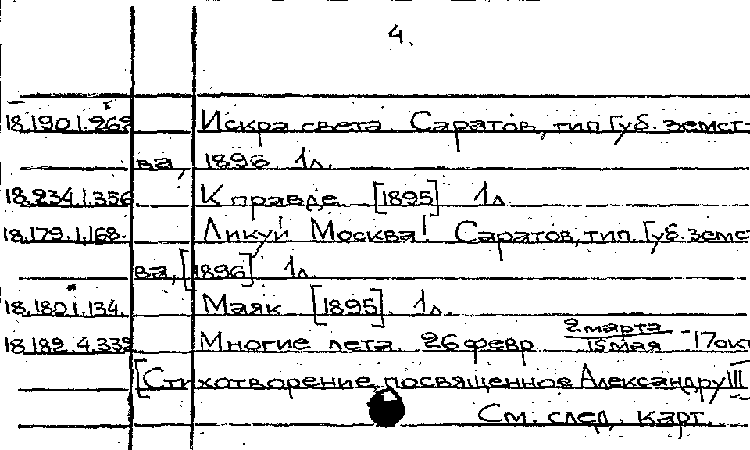 4.
18.190.1.269 Искра света. Саратов, тип. Губ. земст-
ва, 1896 1л.
18.234.1.336 К правде [1895] 1л
18.179.1.168. Ликуй Москва! Саратов, тип. Губ. земст
ва, [1896] 1л.
18.180.1.134. Маяк [1895]. 1л.
18.182.4.339 Многие лета. 26 февр 2 марта 15 мая - 17 ок
[Стихотворение, посвященное Александру III
См. след. карт.